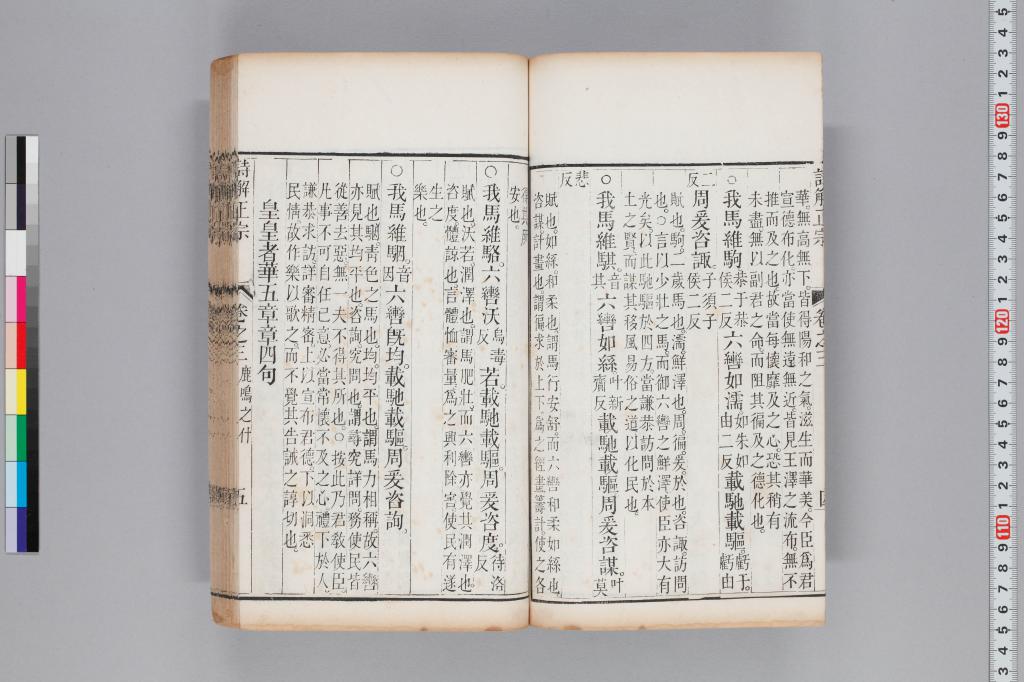 華。無高無下。皆得陽和之氣。滋生而華美。今臣爲君
宣德布化。亦當使無遠無近。皆見王澤之流布。無不
推而及之也。故當每懷靡及之心。恐其稍有
未盡。無以副君之命。而阻其徧及之德化也。
○我馬維駒。恭于恭侯二反六轡如濡。如朱如由二反載馳載驅。虧于虧由
二反周爰咨諏。子須子侯二反
賦也。駒。一歲馬也。濡。鮮澤也。周。徧。爰。於也。咨諏。訪問
也。○言以少壯之馬。而御六轡之鮮澤。使臣亦大有
光矣。以此馳驅於四方。當謙恭訪問於本
土之賢。而謀其移風易俗之道。以化民也。
○我馬維騏。音其六轡如絲。叶新齎反載馳載驅。周爰咨謀。叶莫
悲反
賦也。如絲。和柔也。謂馬行安舒。而六轡和柔如絲也。
咨謀。計畫也。謂徧求於上下。爲之經畫籌計。使之各
安也。
○我馬維駱。六轡沃烏毒反若。載馳載驅。周爰咨度。待洛反
賦也。沃若。潤澤也。謂馬肥壯。而六轡亦覺其潤澤也。
咨度。體諒也。言體恤審量。爲之興利除害。使民有遂
生之
樂也。
○我馬維駰。音因六轡旣均。載馳載驅。周爰咨詢。
賦也。駰。青色之馬也。均。均平也。謂馬力相稱。故六轡
亦見其均平也。咨詢。究問也。謂尋究詳問。務使民皆
從善去惡。無一夫不得其所也。○按此乃君敎使臣。
凡事不可自任己意。必當常懷不及之心。禮下於人。
謙恭求訪。詳審精密。上以宣布君德。下以洞悉
民情。故作樂以歌之。而不覺其告誡之諄切也。
皇皇者華五章章四句
詩解正宗 卷之三 鹿鳴之什 五